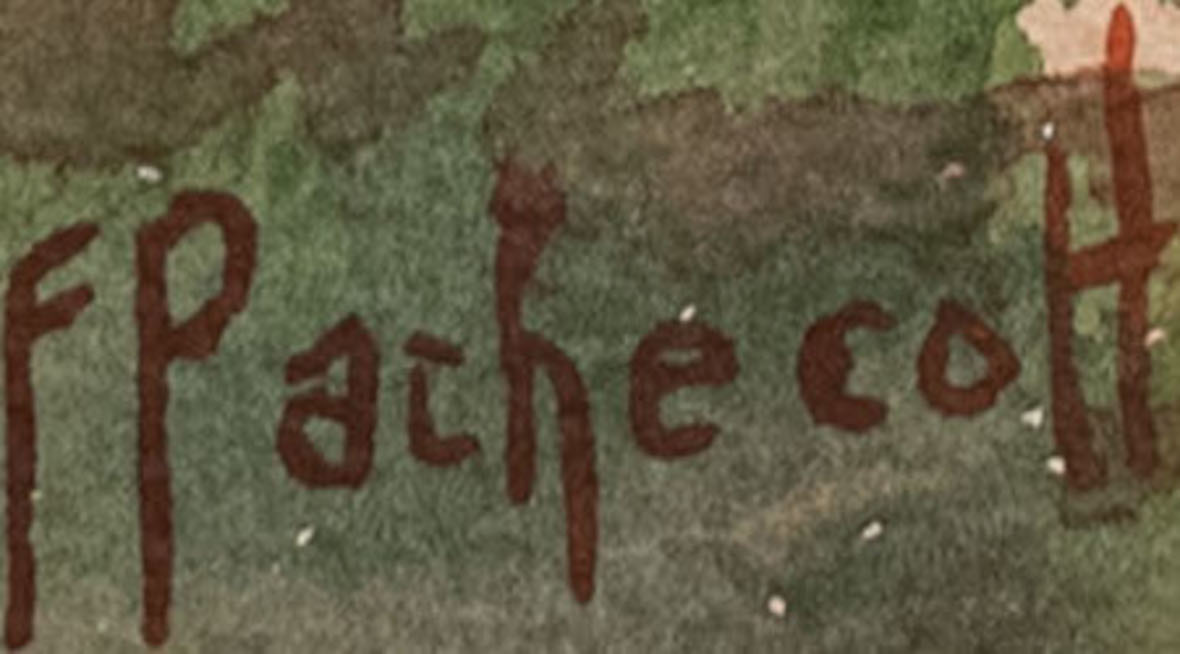 FPacheco H